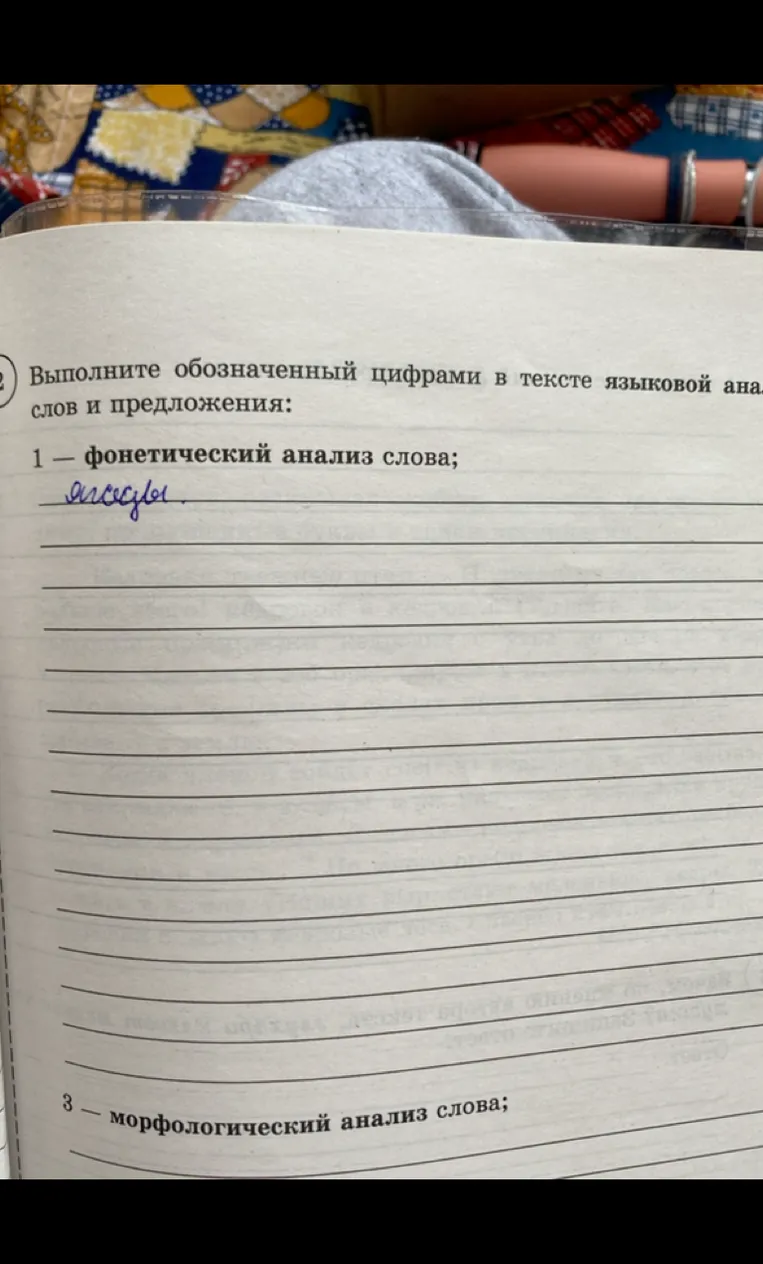 2
Выполните обозначенный цифрами в тексте языковой ана
слов и предложения:
1 — фонетический анализ слова;
ягоды.
3 — морфологический анализ слова;